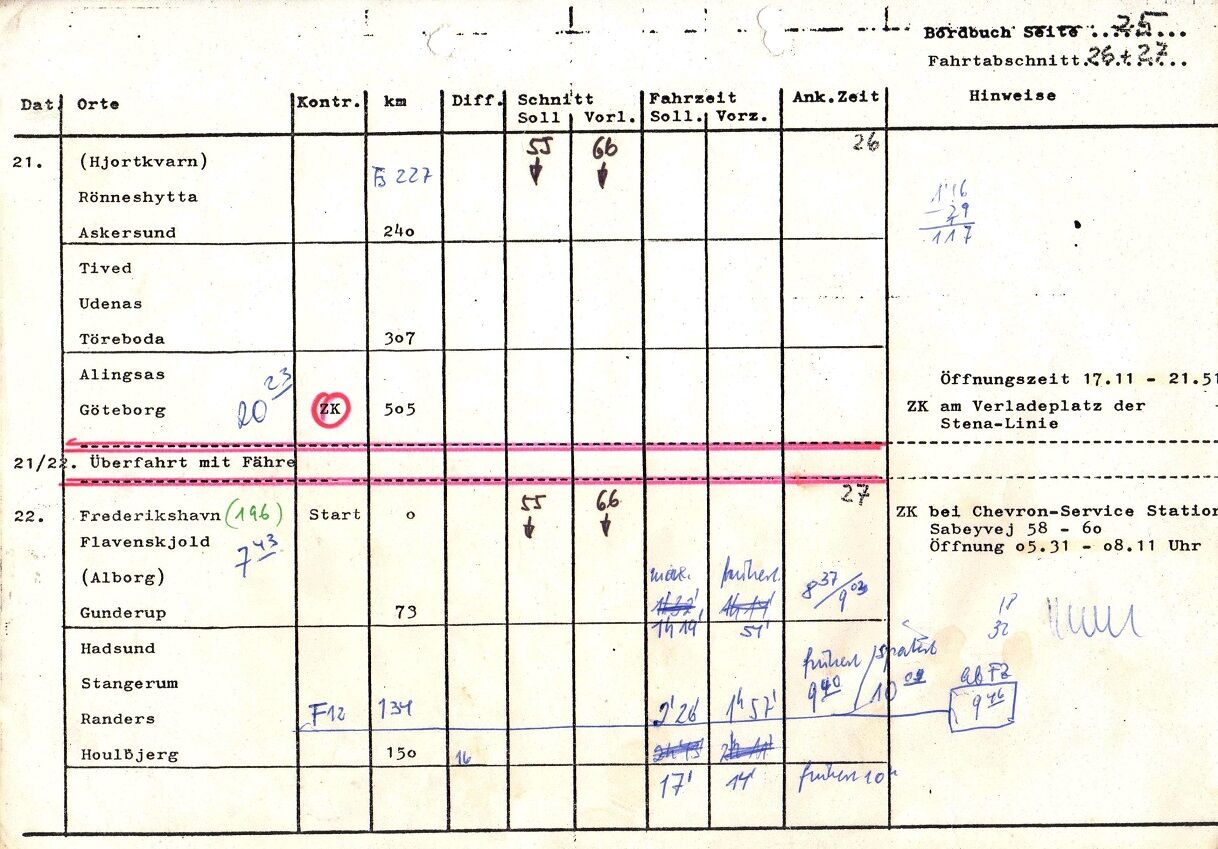 Bordbuch Seite ..25...
Fahrtabschnitt.26+27..
Dat. Orte Kontr. km Diff. Schnitt Fahrzeit Ank.Zeit Hinweise
Soll Vorl. Soll. Vorz.
55 66 26
21. (Hjortkvarn)
227
Rönneshytta
1'16
- 29
117
Askersund 240
Tived
Udenas
Töreboda 307
Alingsas Öffnungszeit 17.11 - 21.51
Göteborg 20 23 ZK 505 ZK am Verladeplatz der
Stena-Linie
21/22. Überfahrt mit Fähre
55 66 27
22. Frederikshavn (196) Start o ZK bei Chevron-Service Station
Sabeyvej 58 - 60
Flavenskjold 7 43 Öffnung 05.31 - 08.11 Uhr
(Alborg) max. frühest 8 37/9 02
Gunderup 73
1h 19' 51'
18
32
Hadsund frühest / spätest
Stangerum 9 40 10 09 ab FZ
Randers F12 134 2' 26 1h 57' 9 46
Houlbjerg 150 16
17' 14' frühest 10